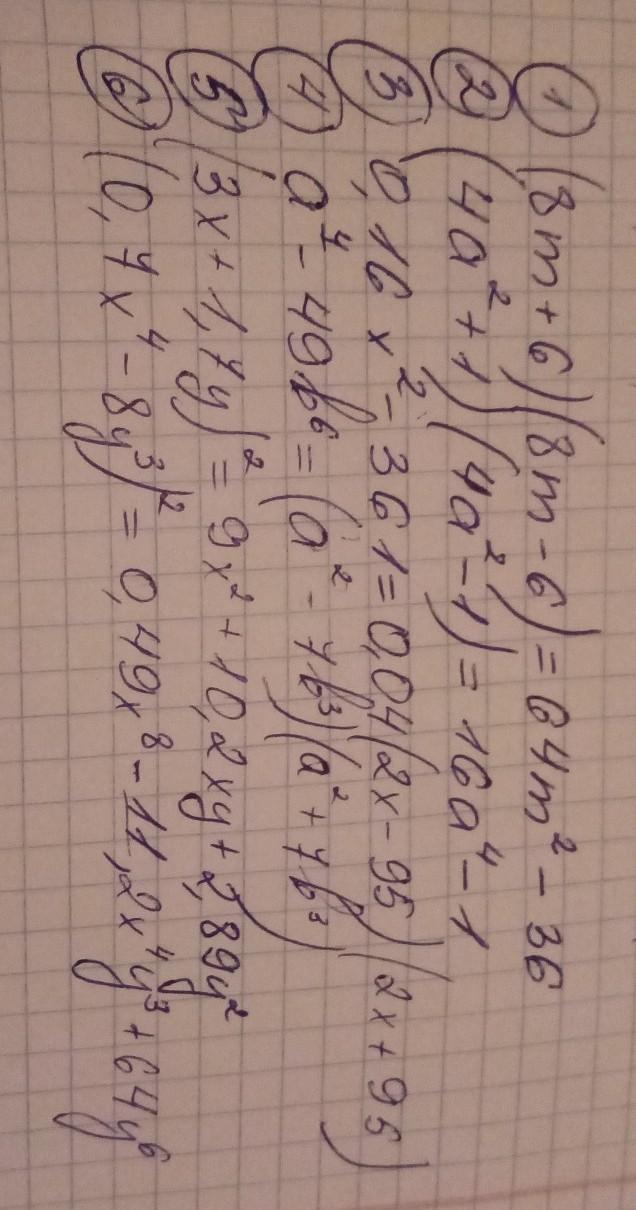 ① (8m+6)(8m-6)=64m²-36
② (4a²+1)(4a²-1)=16a⁴-1
③ 0,16x²-361=0,04(2x-95)(2x+95)
④ a⁴-49b⁶=(a²-7b³)(a²+7b³)
⑤ (3x+1,7y)²=9x²+10,2xy+2,89y²
⑥ (0,7x⁴-8y³)²=0,49x⁸-11,2x⁴y³+64y⁶